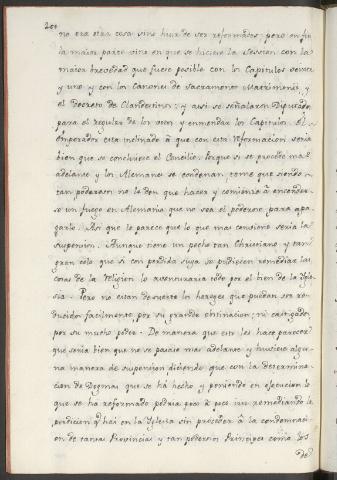 200
no era otra cosa sino huir de ser reformados: pero en fin
la maior parte vino en que se hiciese la Session con la
maior brevedad que fuere posible con los Capitulos veinte
y uno y con los Canones de Sacramento Matrimonii, y
el Decreto de Clandestinos: y assi se señalaron Diputados
para el regular de los votos y enmendar los Capitulos. El
Emperador esta inclinado à que con esta reformacion seria
bien que se concluiese el Concilio. Porque si se procede mas
adelante y los Alemanes se condenan, como que siendo
tan poderosos no le den que hacer y comienze à encender-
se un fuego en Alemania que no sea el poderoso para apa-
garlo. Asi que le parece que lo que mas combino seria la
suspension. Aunque tiene un pecho tan Christiano y tan
gran celo que si con perdida suya se pudiesen remediar las
cosas de la religion lo aventuraria todo por el bien de la Igle-
sia. Pero no estan de suerte los hereges que puedan ser re-
ducidos facilmente por su grande obstinacion, ni castigados,
por su mucho poder. De manera que esto les hace parecer
que seria bien que no se pasase mas adelante y huviese algu-
na manera de suspension diciendo que con la determina-
cion de Dogmas que se há hecho y poniendo en execucion lo
que se há reformado podria poco à poco irse remediando la
perdicion q̃ hai en la Iglesia sin proceder à la condenaci-
on de tantas Provincias y tan poderosos Principes como los
de